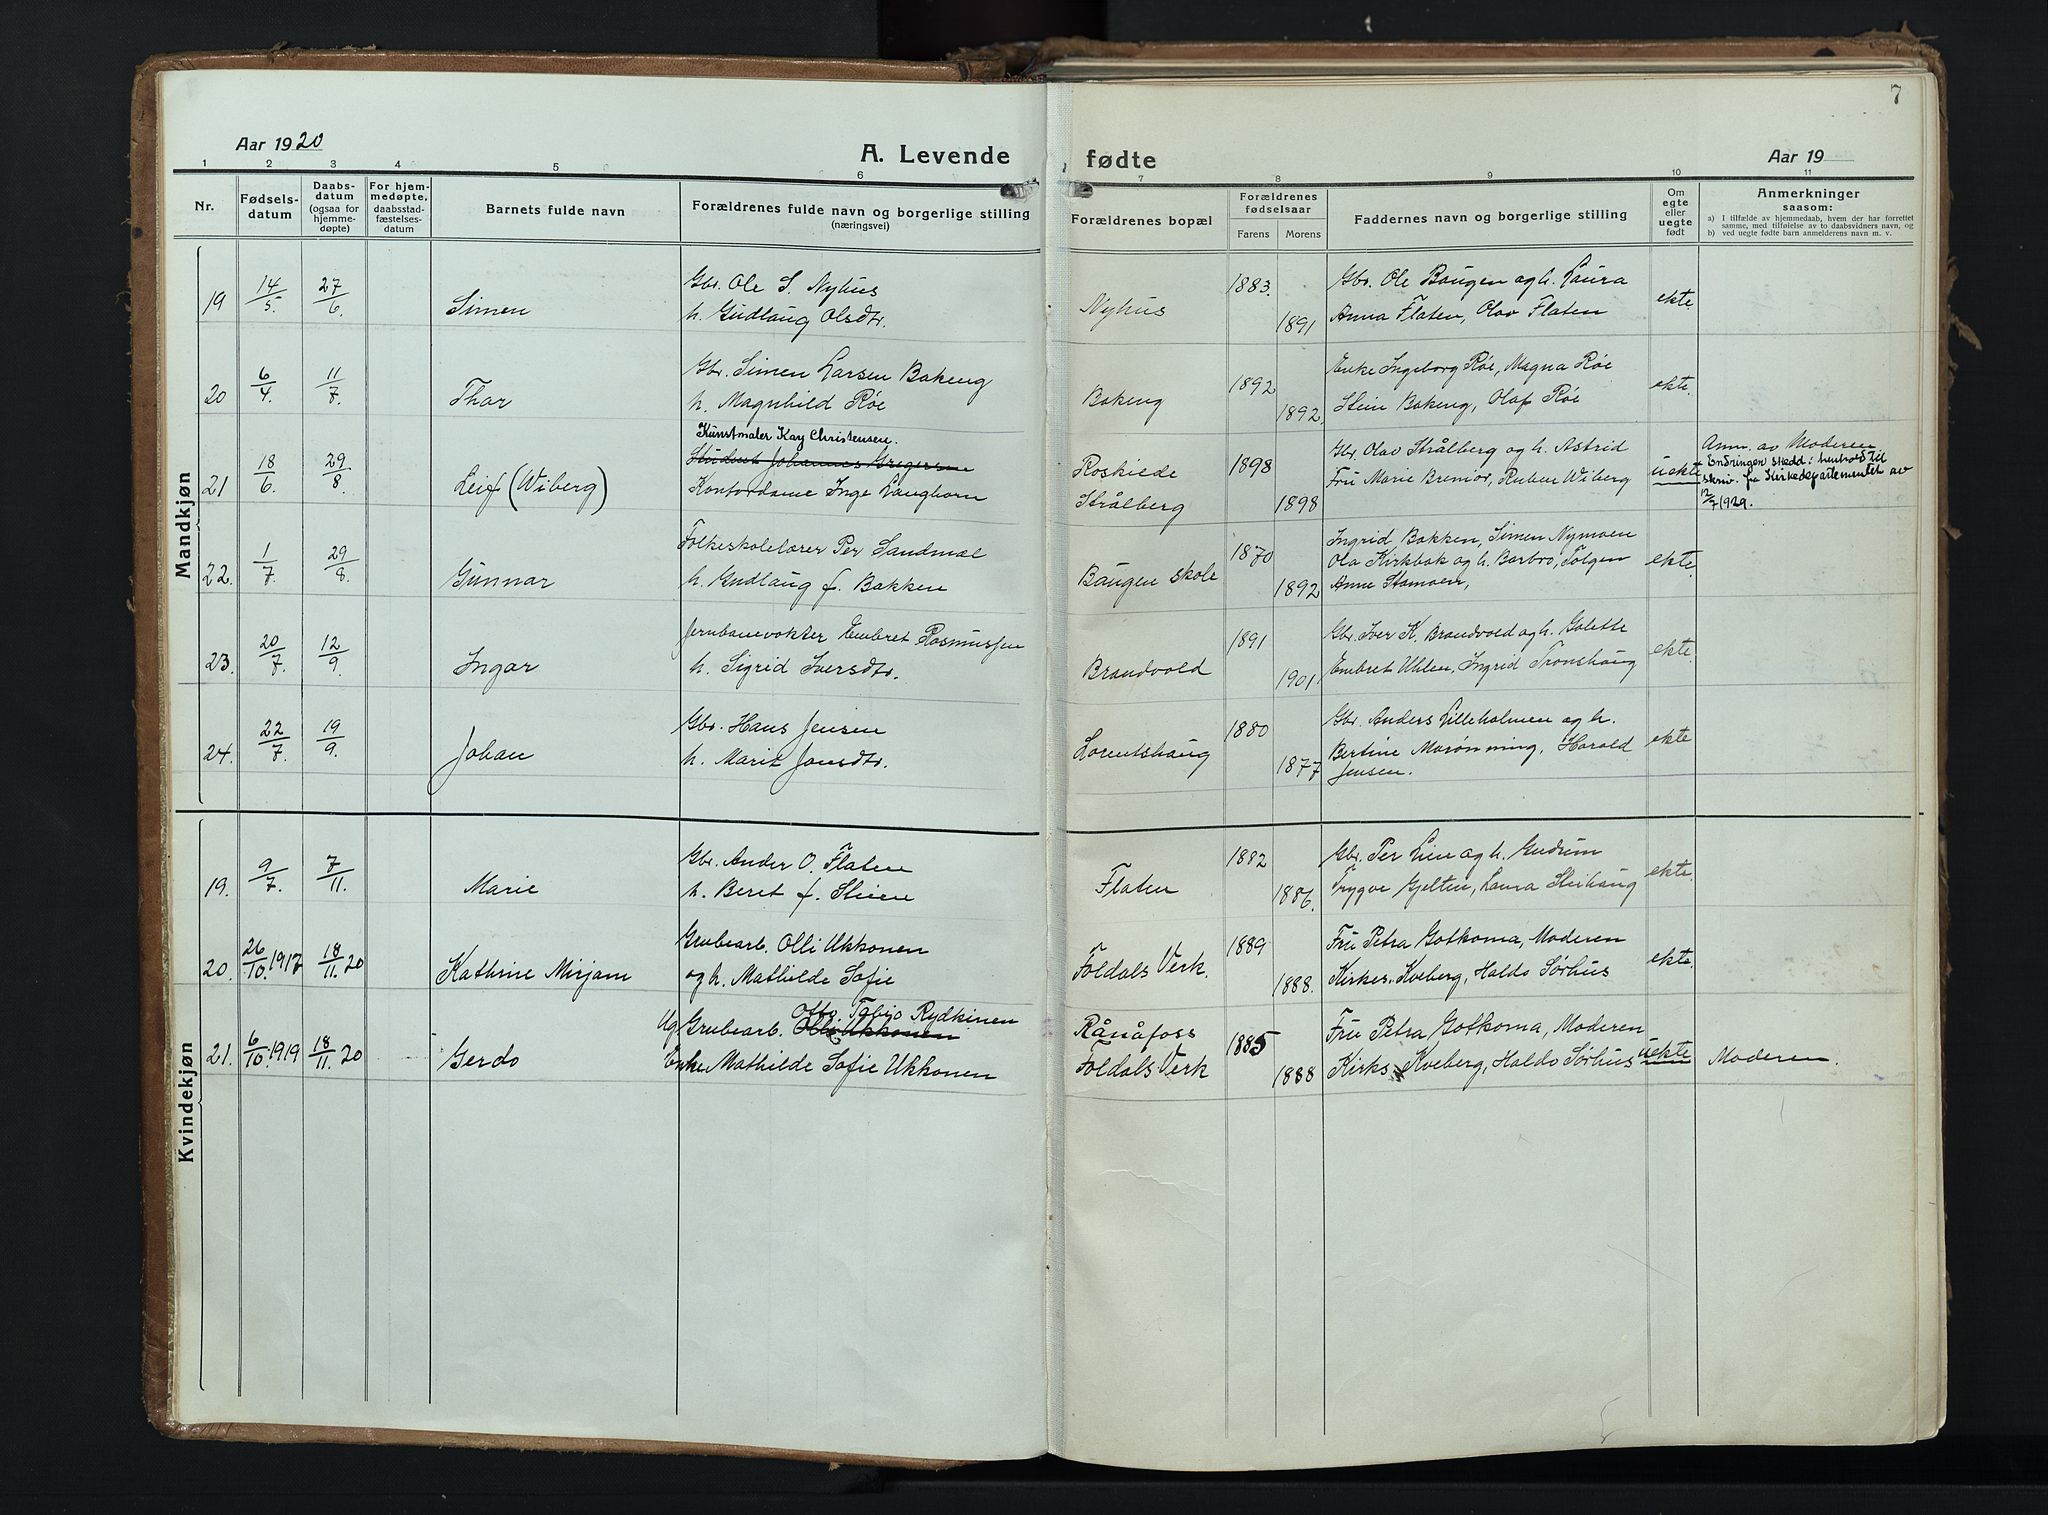 7
Aar 1920
A. Levende fødte
Aar 19
1 2 3 4 5 6 7 8 9 10 11
Nr.
Fødsels-
datum
Daabs-
datum
(ogsaa for
hjemme-
døpte)
For hjem-
medøpte,
daabsstad-
fæstelses-
datum
Barnets fulde navn
Forældrenes fulde navn og borgerlige stilling
(næringsvei)
Forældrenes bopæl
Forældrenes
fødselsaar
Farens
Morens
Faddernes navn og borgerlige stilling
Om
egte
eller
uegte
født
Anmerkninger
saasom:
a) I tilfælde av hjemmedaab, hvem der har forrettet
samme, med tilføielse av to daabsvidners navn, og
b) ved uegte fødte barn anmelderens navn m. v.
Mandkjøn
19 14/5. 27/6. Simen
Gbr. Ole S. Nyhus
h. Gudlaug Olsdtr.
Nyhus 1883. 1891
Gbr. Ole Baugen og h. Laura
Anna Flaten, Olav Flaten
ekte.
20 6/4. 11/7. Thor
Gbr. Simen Larsen Bakeng
h. Magnhild Røe
Bakeng 1892 1892.
Enke Ingeborg Røe, Magna Røe
Stein Bakeng, Olaf Røe
ekte.
21 18/6. 29/8. Leif (Wiberg)
Kunstmaler Kay Christensen.
Student Johannes Gregersen
Kontordame Inge Langhorn
Roskilde
Strålberg
1898 1898
Gbr. Olav Strålberg og h. Astrid
Fru Marie Bremør, Ruben Wiberg
uekte
Anm. av Moderen
Endringen skedd i henhold til
skriv. fra Kirkedepartementet av
12/7 1929.
22. 1/7. 29/8. Gunnar
Folkeskolelærer Per Sandmæl
h. Gudlaug f. Bakken
Baugen skole 1870 1892
Ingrid Bakken, Simen Nymoen
Ola Kirkbak og h. Barbro, Tolgen
Anne Stamoen,
ekte.
23. 20/7. 12/9. Ingar
Jernbanevokter Embret Rasmussen
h. Sigrid Iversdtr.
Brandvold 1891 1901
Gbr. Iver K. Brandvold og h. Galette
Embret Uhlen, Ingrid Tronshaug
ekte.
24. 22/7. 19/9. Johan
Gbr. Hans Jensen
h. Marit Jonsdtr.
Lorentshaug 1880 1877
Gbr. Anders Lilleholmen og h.
Bertine Morønning, Harald
Jensen.
ekte
Kvindekjøn
19. 9/7. 7/11. Marie
Gbr. Ander O. Flaten
h. Beret f. Steien
Flaten 1882 1886.
Gbr. Per Lien og h. Gudrun
Trygve Gjelten, Laura Steihaug
ekte.
20. 26/10. 1917 18/11. 20 Kathrine Mirjam
Grubearb. Olli Ukkonen
og h. Mathilde Sofie
Foldals Verk. 1889 1888.
Fru Petra Gotkoma, Moderen
Kirkes. Kveberg, Haldo Sørhus
ekte.
21. 6/10. 1919 18/11. 20 Gerdo
Tobias Rydkinen
Ug Grubearb. Olli Ukkonen
Enke Mathilde Sofie Ukkonen
Rånåfoss
Foldals Verk
1885 1888
Fru Petra Gotkoma, Moderen
Kirks. Kveberg, Haldo Sørhus
uekte
Moderen.